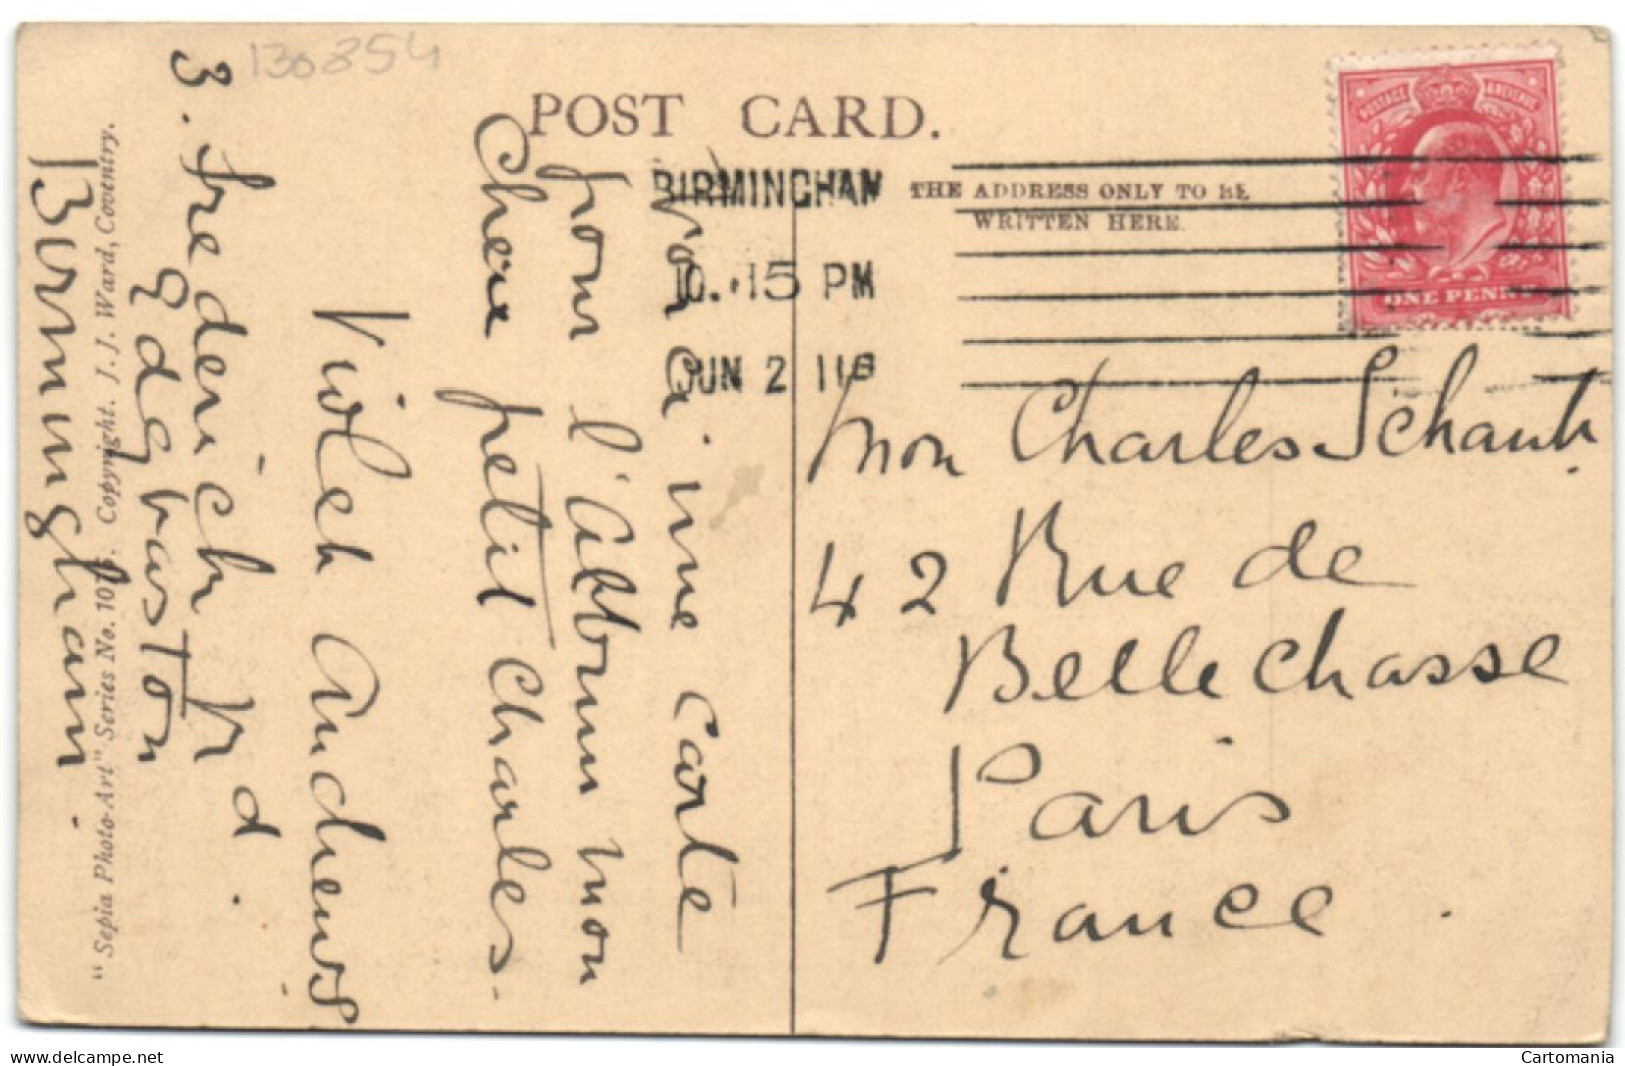 130854
POST CARD.
THE ADDRESS ONLY TO BE
WRITTEN HERE.
BIRMINGHAM
10.15 PM
JUN 2 11
POSTAGE REVENUE
ONE PENNY
Voici une carte
pour l'Album mon
Chere petit Charles.
Violet Andrews
3. Frederick Rd.
Edgbaston
Birmingham.
"Sepia Photo-Art" Series No. Copyright. J. J. Ward, Coventry.
Mon Charles
42 Rue de
Belle Chasse
Paris
France.
www.delcampe.net
Cartomania